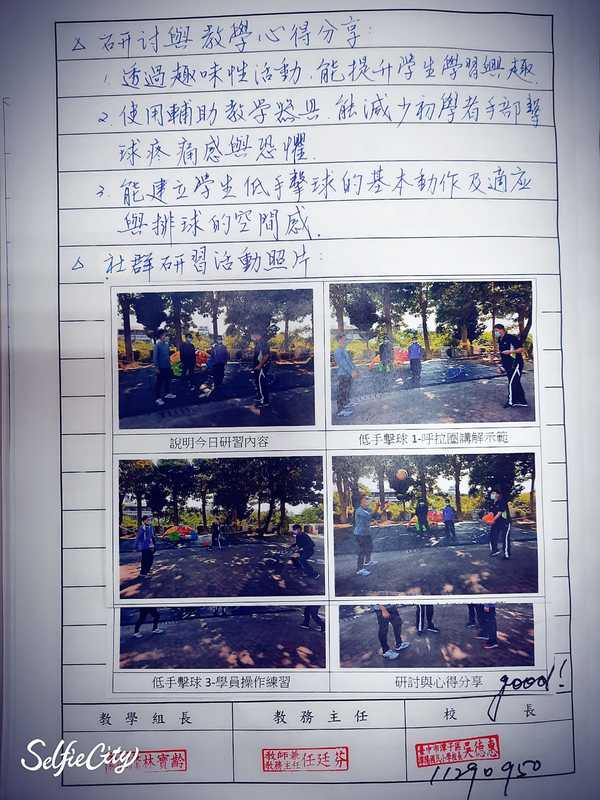 △ 研討與教學心得分享:
1. 透過趣味性活動,能提升學生學習興趣.
2. 使用輔助教学器具,能減少初學者手部擊
球疼痛感與恐懼.
3. 能建立學生低手擊球的基本動作及適应
與排球的空間感.
△ 社群研習活動照片:
說明今日研習內容
低手擊球 1-呼拉圈講解示範
低手擊球 3-學員操作練習
研討與心得分享
good!
教學組長
教務主任
校長
林寶齡
教師兼
教務主任 任廷芬
臺中市潭子區
潭陽國民小學校長 吳德惠
11290950
SelfieCity